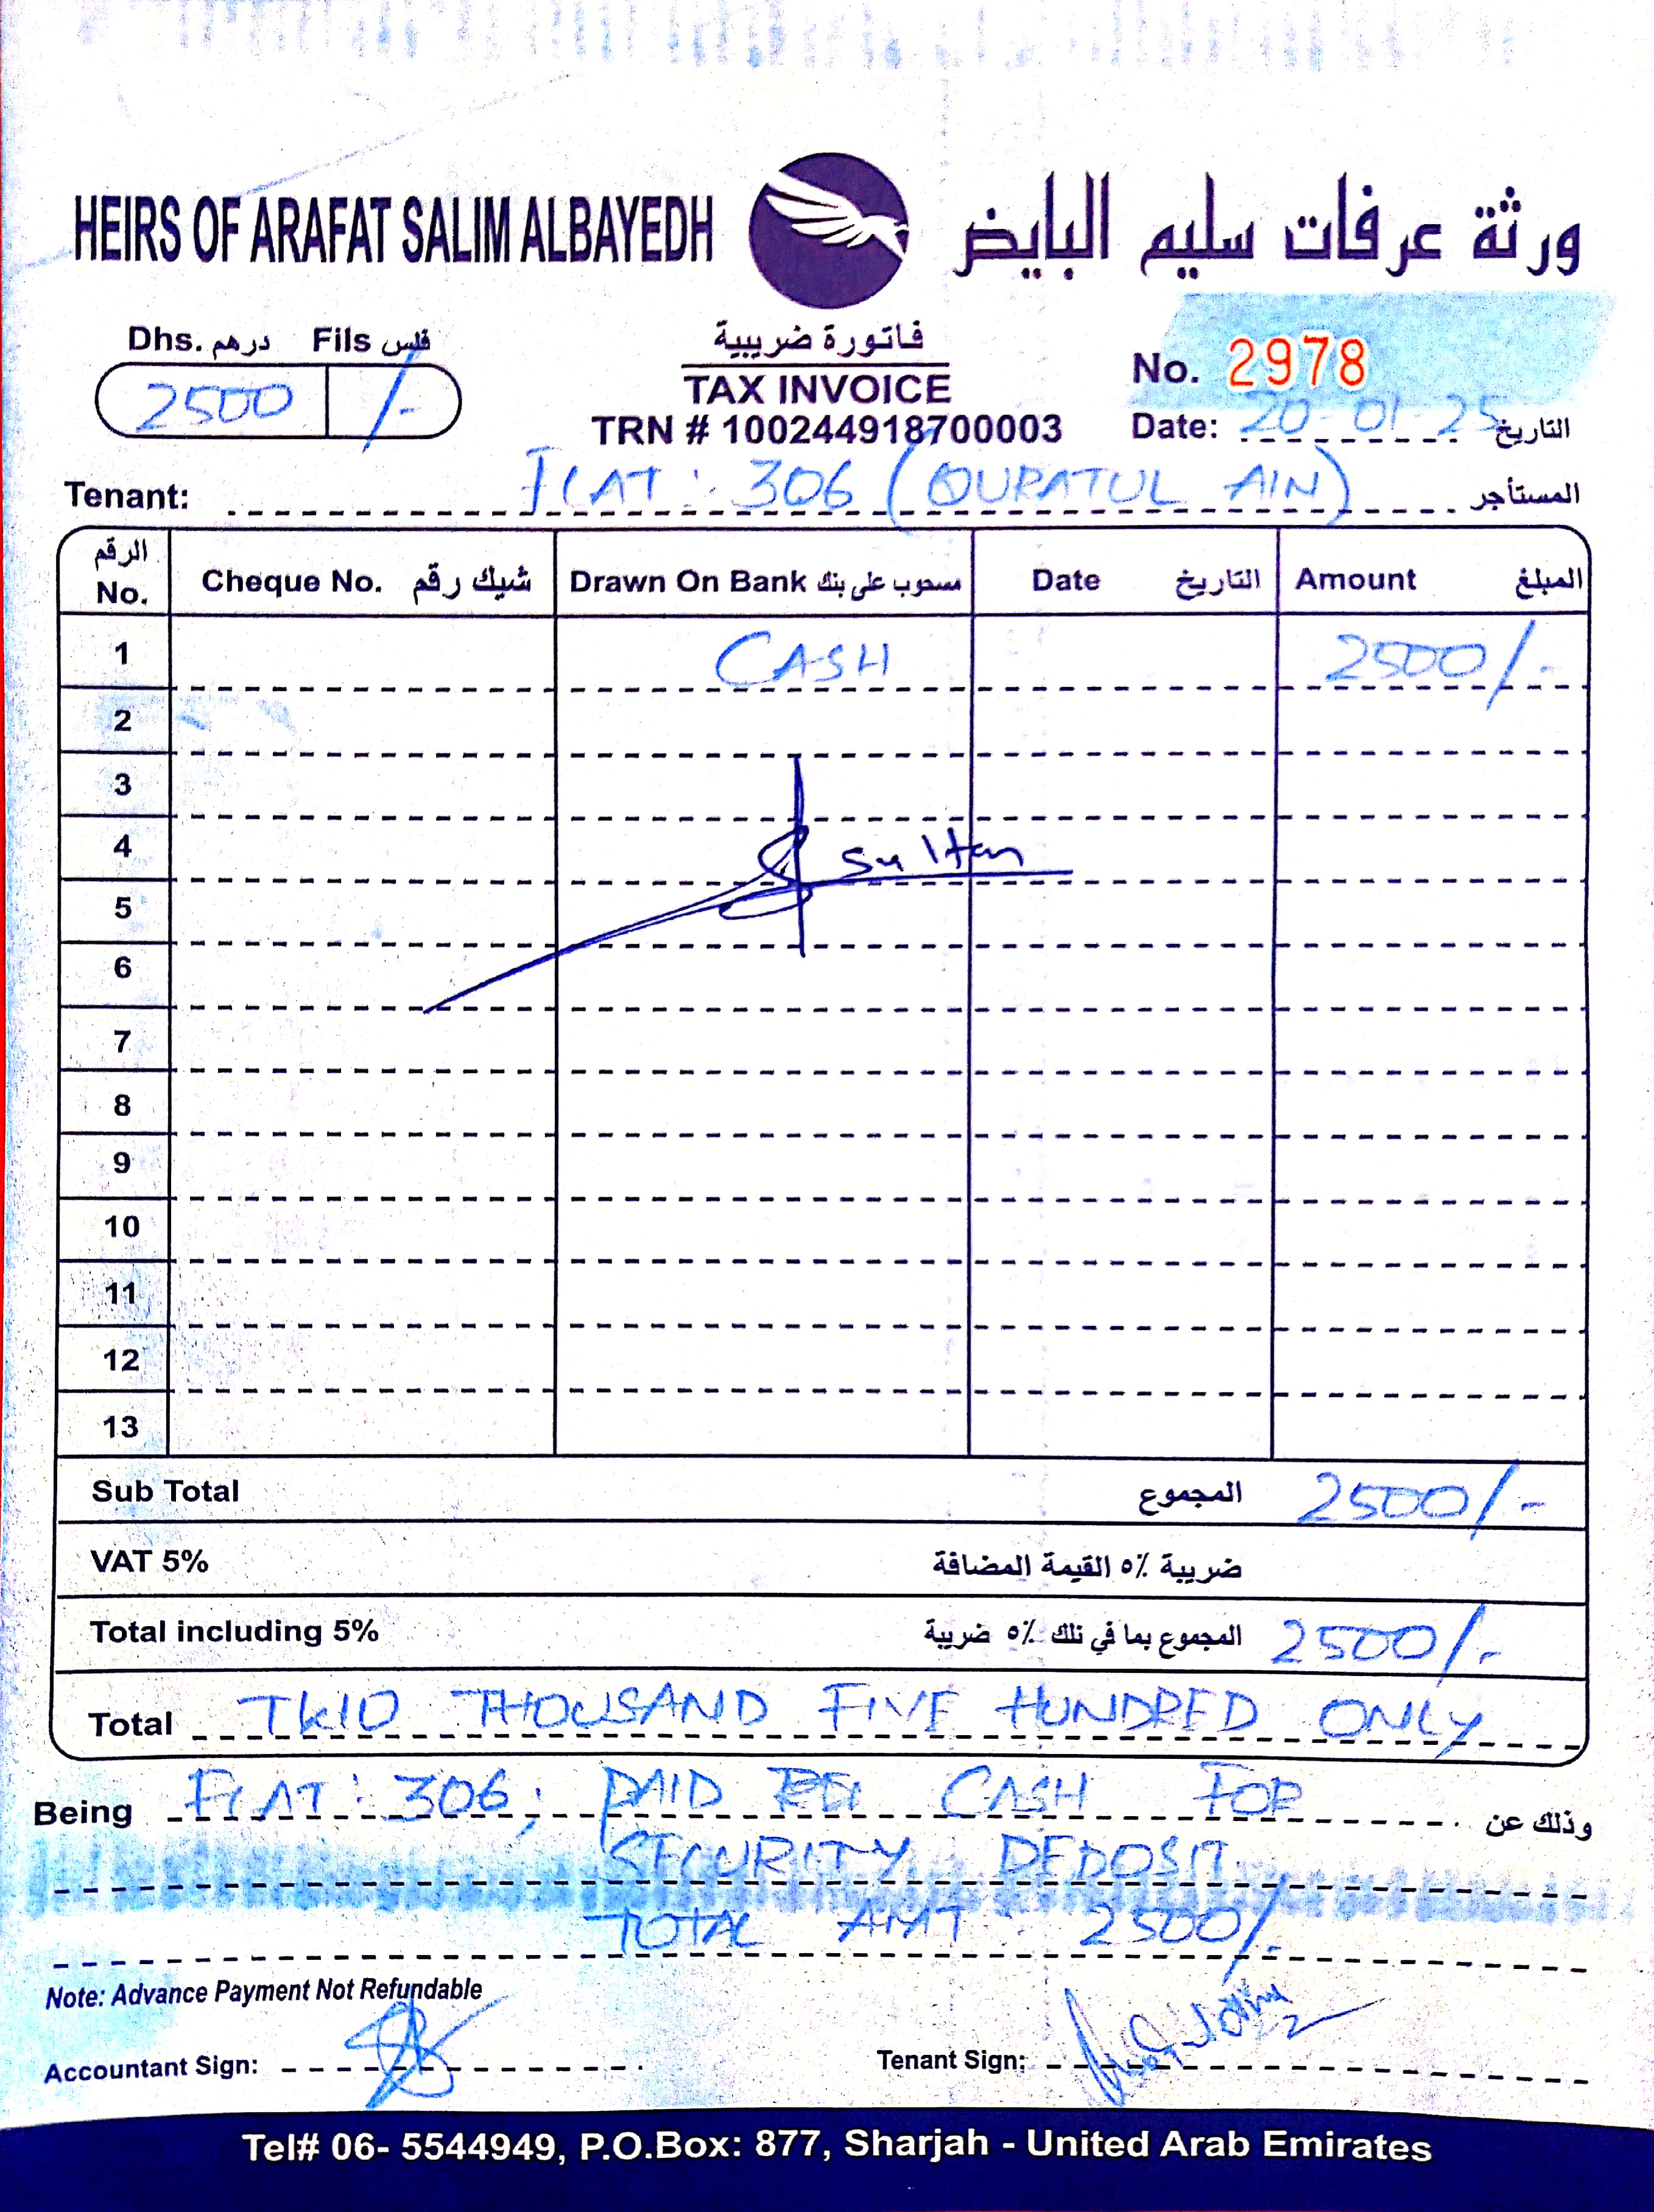 HEIRS OF ARAFAT SALIM ALBAYEDH ورثة عرفات سليم البايض
Dhs. درهم Fils فلس
2500 /-
فاتورة ضريبية
TAX INVOICE
TRN # 100244918700003
No. 2978
Date: 20-01-25 التاريخ
Tenant: FLAT: 306 (QURATUL AIN) المستأجر
الرقم No. Cheque No. شيك رقم Drawn On Bank مسحوب على بنك Date التاريخ Amount المبلغ
1 CASH 2500/-
2
3
4 Sultan
5
6
7
8
9
10
11
12
13
Sub Total المجموع 2500/-
VAT 5% ضريبة ٥٪ القيمة المضافة
Total including 5% المجموع بما في تلك ٥٪ ضريبة 2500/-
Total THOUSAND FIVE HUNDRED ONLY
Being FLAT: 306, PAID CASH FOR وذلك عن
SECURITY DEPOSIT
TOTAL AMT: 2500/-
Note: Advance Payment Not Refundable
Accountant Sign: Tenant Sign:
Tel# 06- 5544949, P.O.Box: 877, Sharjah - United Arab Emirates